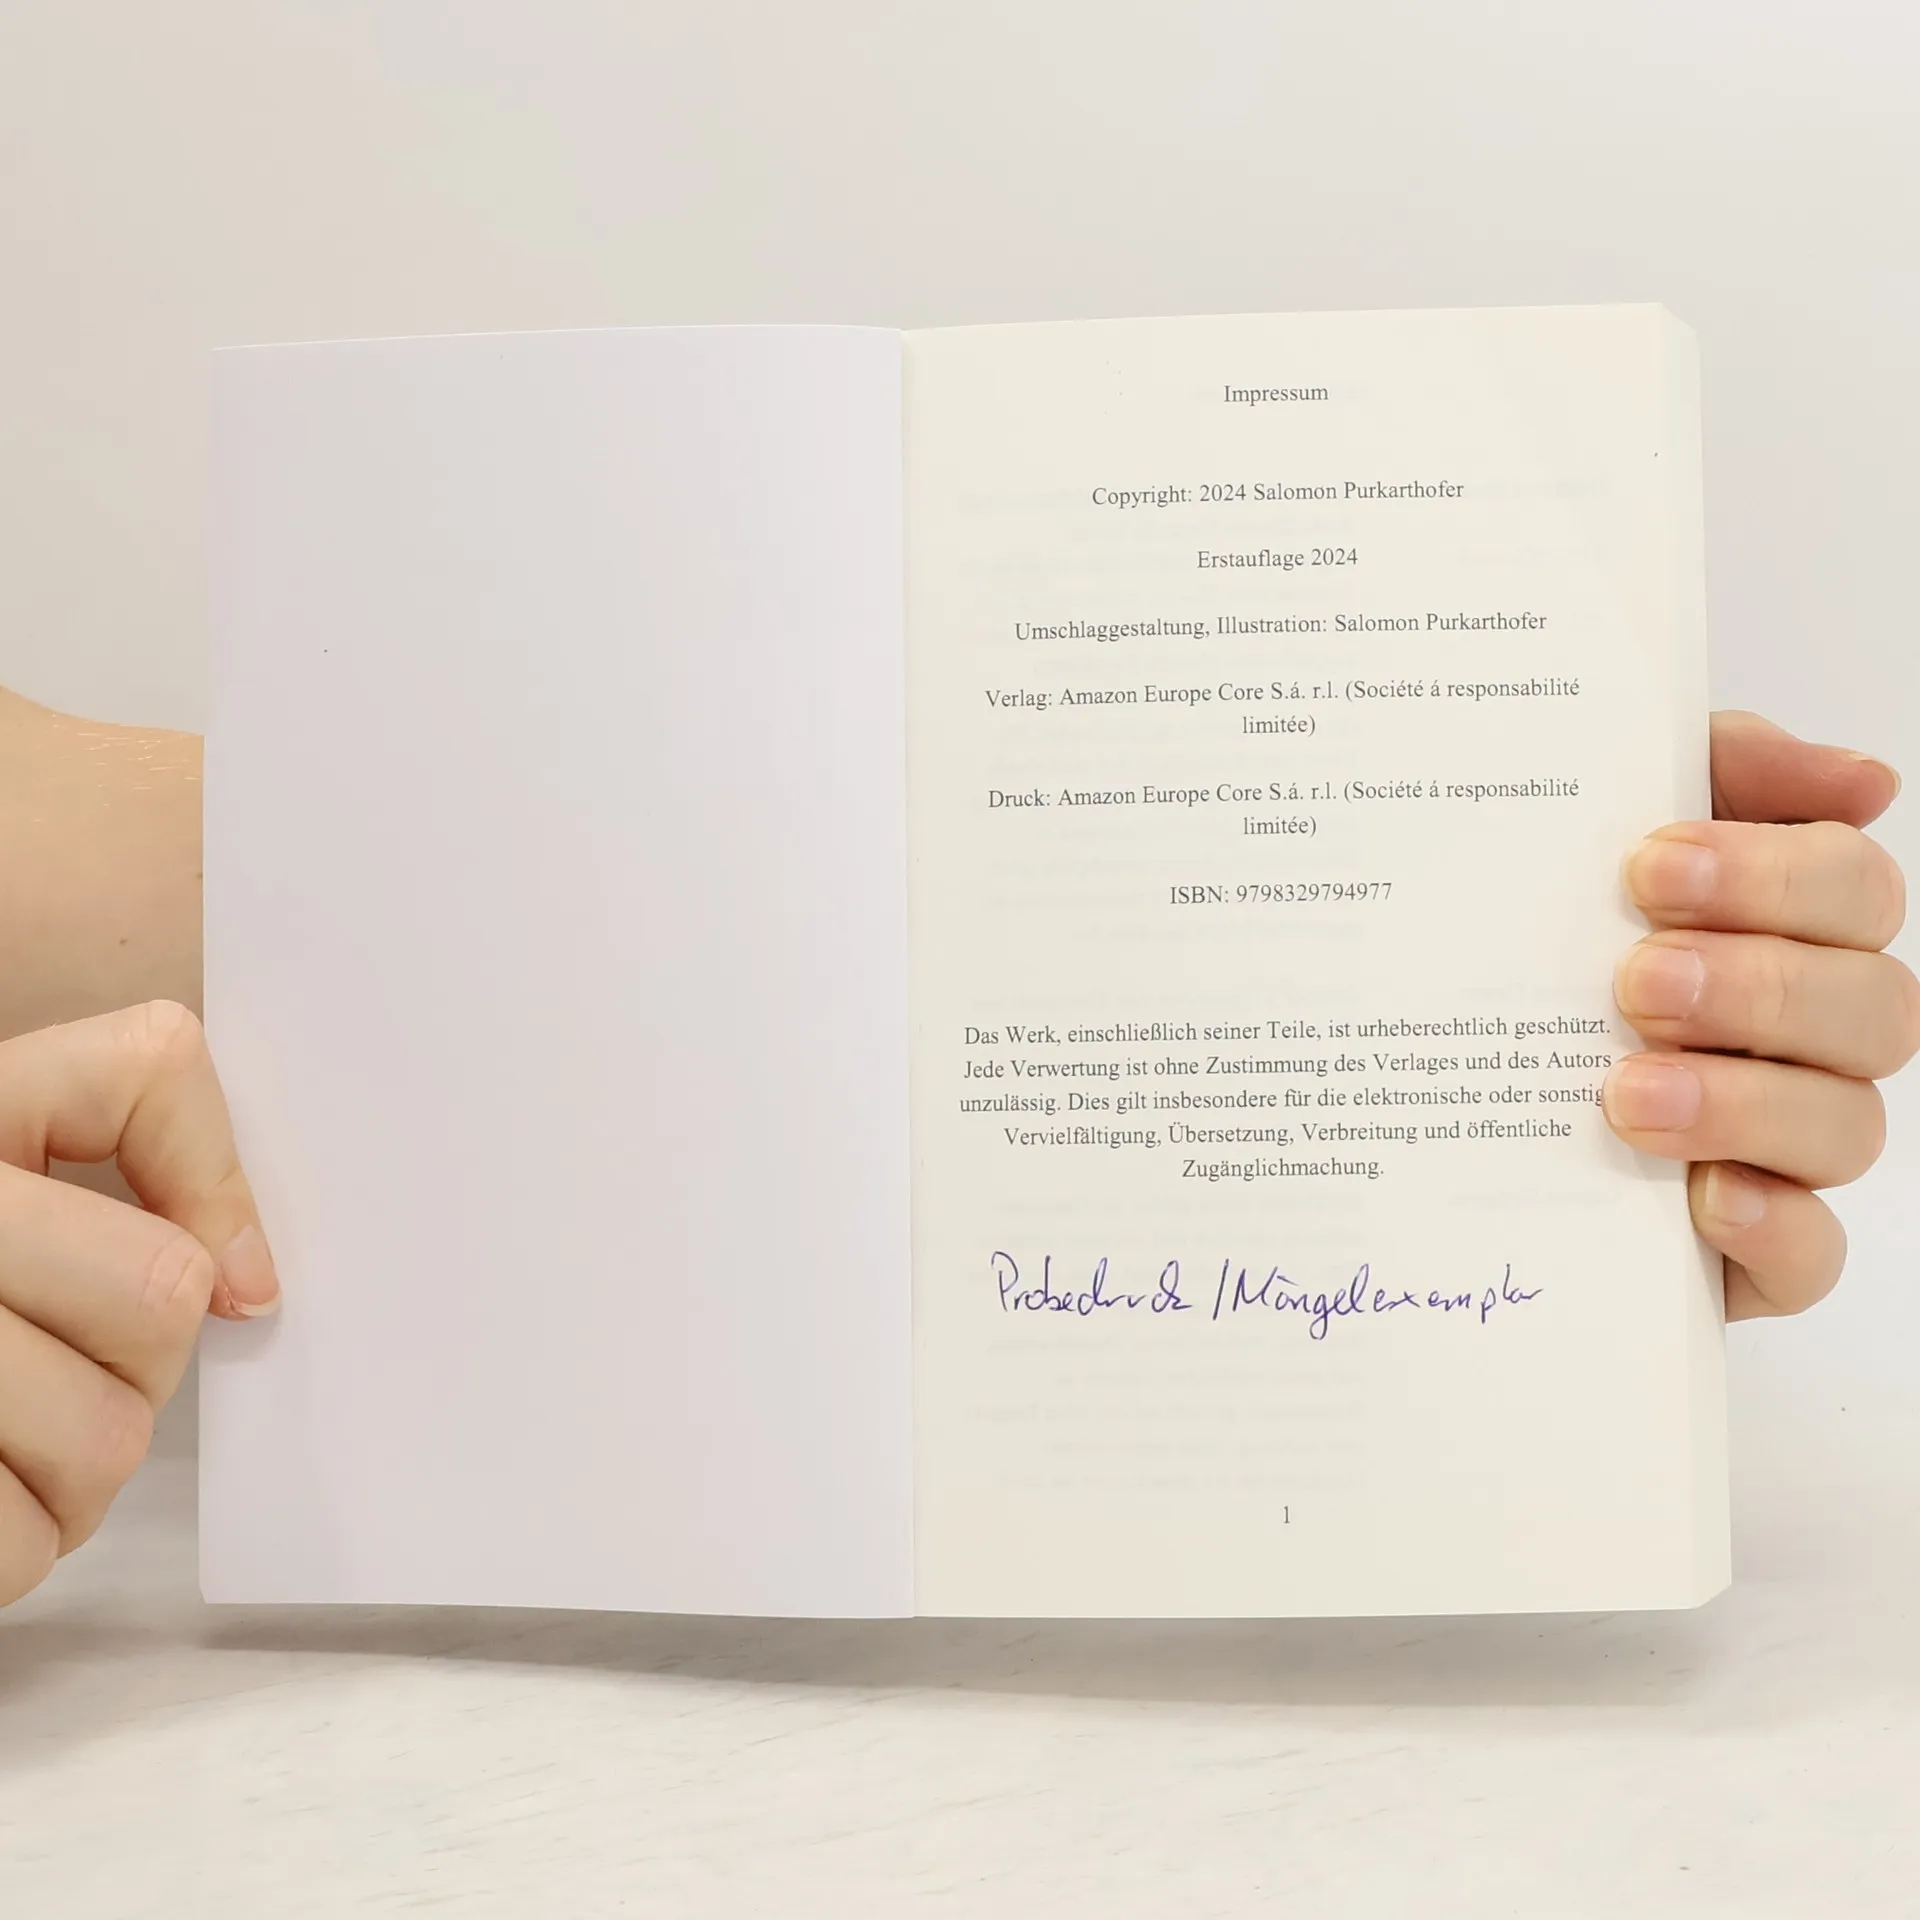 Impressum
Copyright: 2024 Salomon Purkarthofer
Erstauflage 2024
Umschlaggestaltung, Illustration: Salomon Purkarthofer
Verlag: Amazon Europe Core S.á. r.l. (Société á responsabilité
limitée)
Druck: Amazon Europe Core S.á. r.l. (Société á responsabilité
limitée)
ISBN: 9798329794977
Das Werk, einschließlich seiner Teile, ist urheberechtlich geschützt.
Jede Verwertung ist ohne Zustimmung des Verlages und des Autors
unzulässig. Dies gilt insbesondere für die elektronische oder
Vervielfältigung, Übersetzung, Verbreitung und öffentliche
Zugänglichmachung.
Probedruck / Mängelexemplar
1